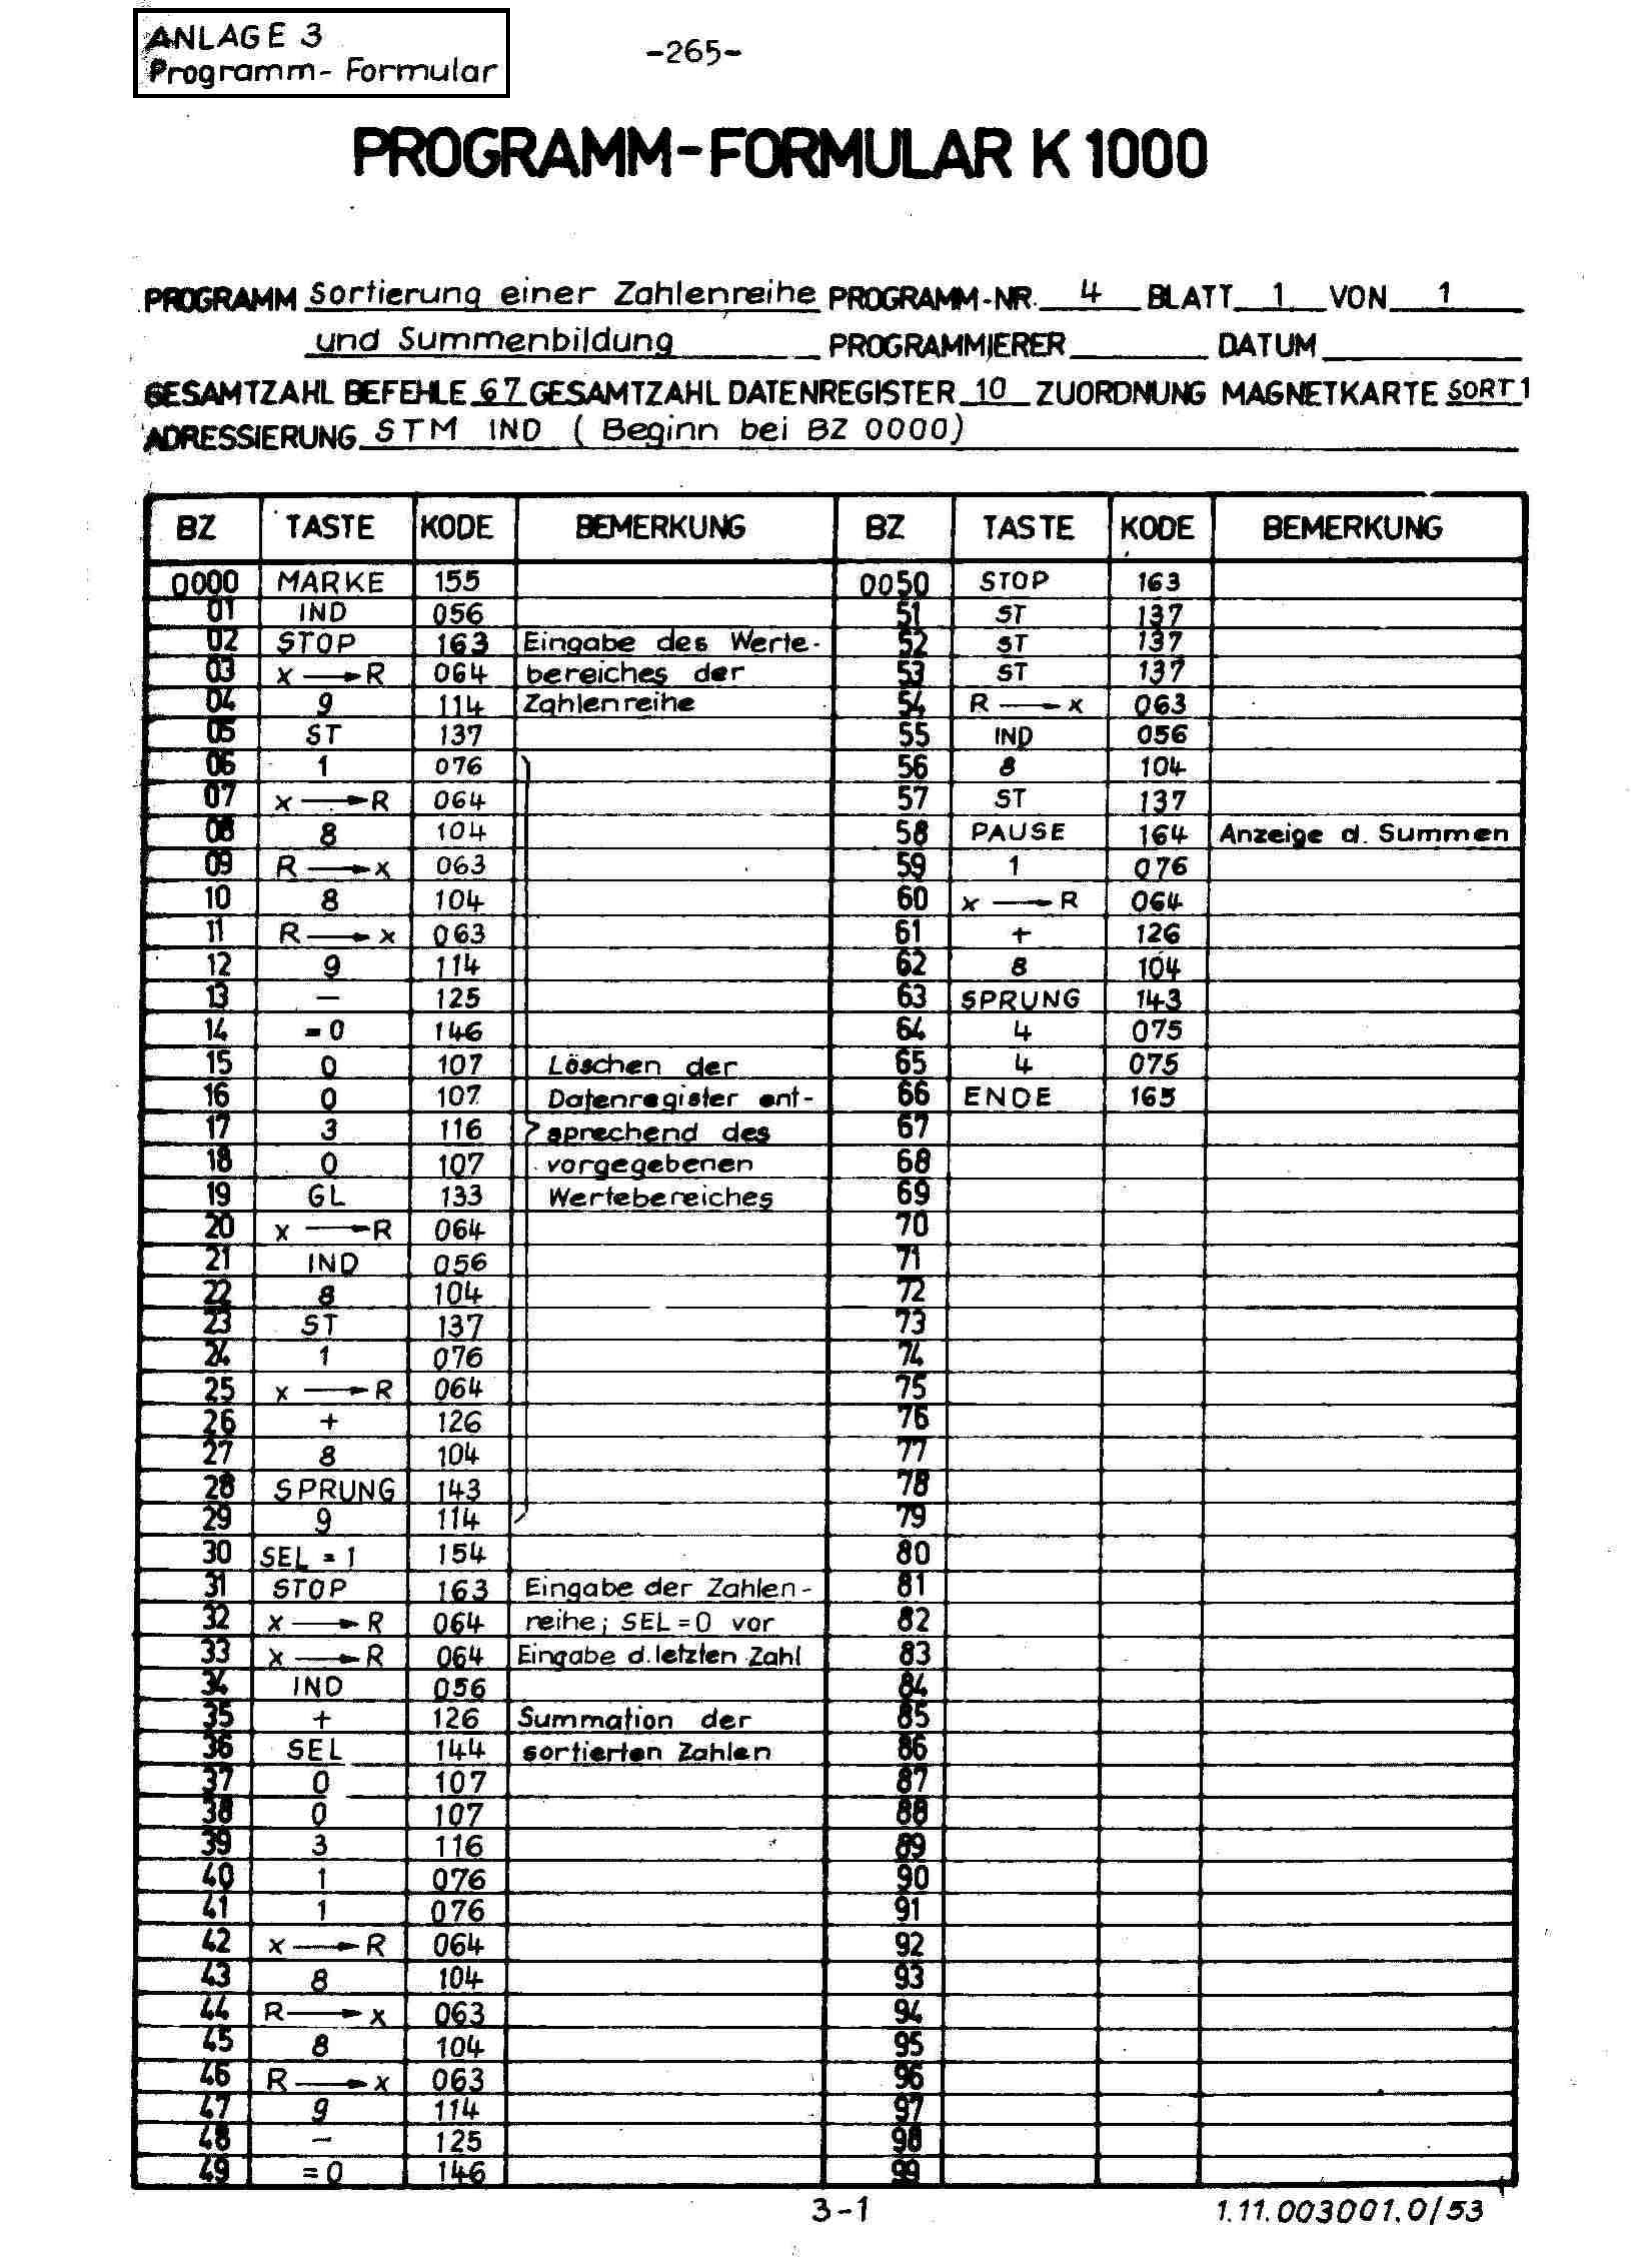 ANLAGE 3
Programm-Formular
-265-
PROGRAMM-FORMULAR K 1000
PROGRAMM Sortierung einer Zahlenreihe PROGRAMM-NR. 4 BLATT 1 VON 1
und Summenbildung PROGRAMMIERER DATUM
GESAMTZAHL BEFEHLE 67 GESAMTZAHL DATENREGISTER 10 ZUORDNUNG MAGNETKARTE SORT 1
ADRESSIERUNG STM IND (Beginn bei BZ 0000)
BZ TASTE KODE BEMERKUNG BZ TASTE KODE BEMERKUNG
0000 MARKE 155 0050 STOP 163
01 IND 056 51 ST 137
02 STOP 163 Eingabe des Werte- 52 ST 137
03 x → R 064 bereiches der 53 ST 137
04 9 114 Zahlenreihe 54 R → x 063
05 ST 137 55 IND 056
06 1 076 56 8 104
07 x → R 064 57 ST 137
08 8 104 58 PAUSE 164 Anzeige d. Summen
09 R → x 063 59 1 076
10 8 104 60 x → R 064
11 R → x 063 61 + 126
12 9 114 62 8 104
13 – 125 63 SPRUNG 143
14 =0 146 64 4 075
15 0 107 Löschen der 65 4 075
16 0 107 Datenregister ent- 66 ENDE 165
17 3 116 sprechend des 67
18 0 107 vorgegebenen 68
19 GL 133 Wertebereiches 69
20 x → R 064 70
21 IND 056 71
22 8 104 72
23 ST 137 73
24 1 076 74
25 x → R 064 75
26 + 126 76
27 8 104 77
28 SPRUNG 143 78
29 9 114 79
30 SEL = 1 154 80
31 STOP 163 Eingabe der Zahlen- 81
32 x → R 064 reihe; SEL=0 vor 82
33 x → R 064 Eingabe d. letzten Zahl 83
34 IND 056 84
35 + 126 Summation der 85
36 SEL 144 sortierten Zahlen 86
37 0 107 87
38 0 107 88
39 3 116 89
40 1 076 90
41 1 076 91
42 x → R 064 92
43 8 104 93
44 R → x 063 94
45 8 104 95
46 R → x 063 96
47 9 114 97
48 – 125 98
49 =0 146 99
3-1
1.11.003001.0/53